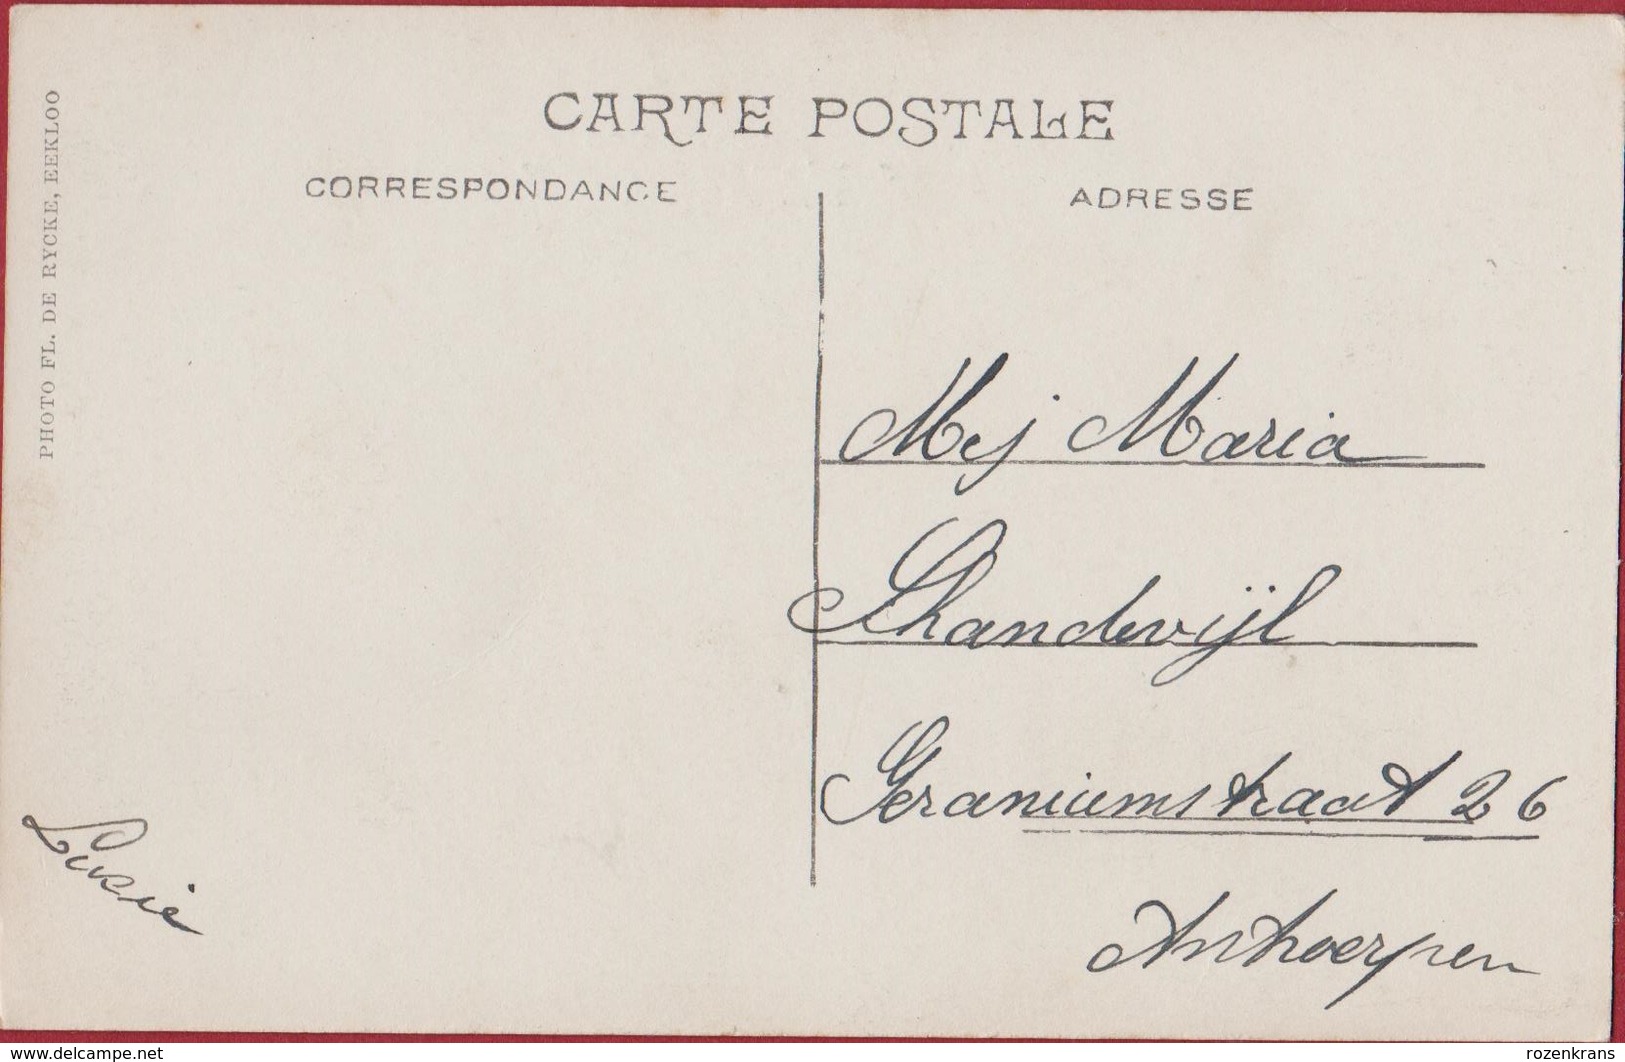 CARTE POSTALE
CORRESPONDANCE
ADRESSE
PHOTO FL. DE RYCKE, EEKLOO
Mej Maria
Geraniumstraat 26
Antwerpen
www.delcampe.net
rozenkrans